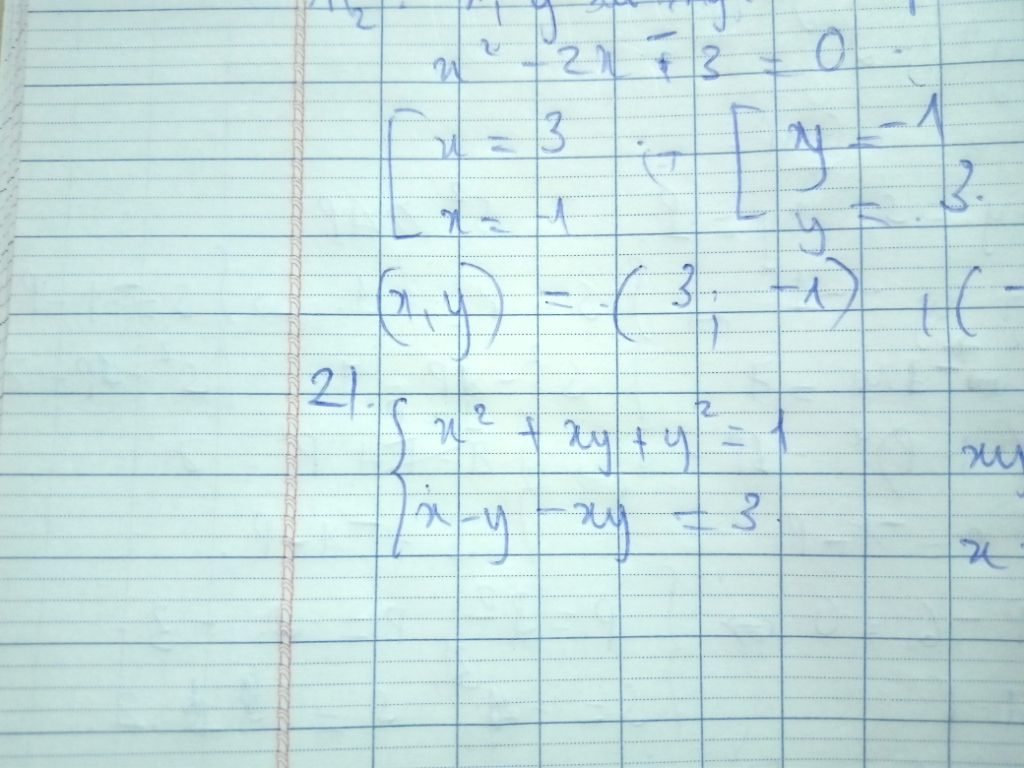 x² - 2x - 3 = 0
[ x = 3 [ y = -1
x = -1 y = 3.
(x, y) = (3; -1), (-
21.
{ x² + xy + y² = 1 xy
x - y - xy = 3 x